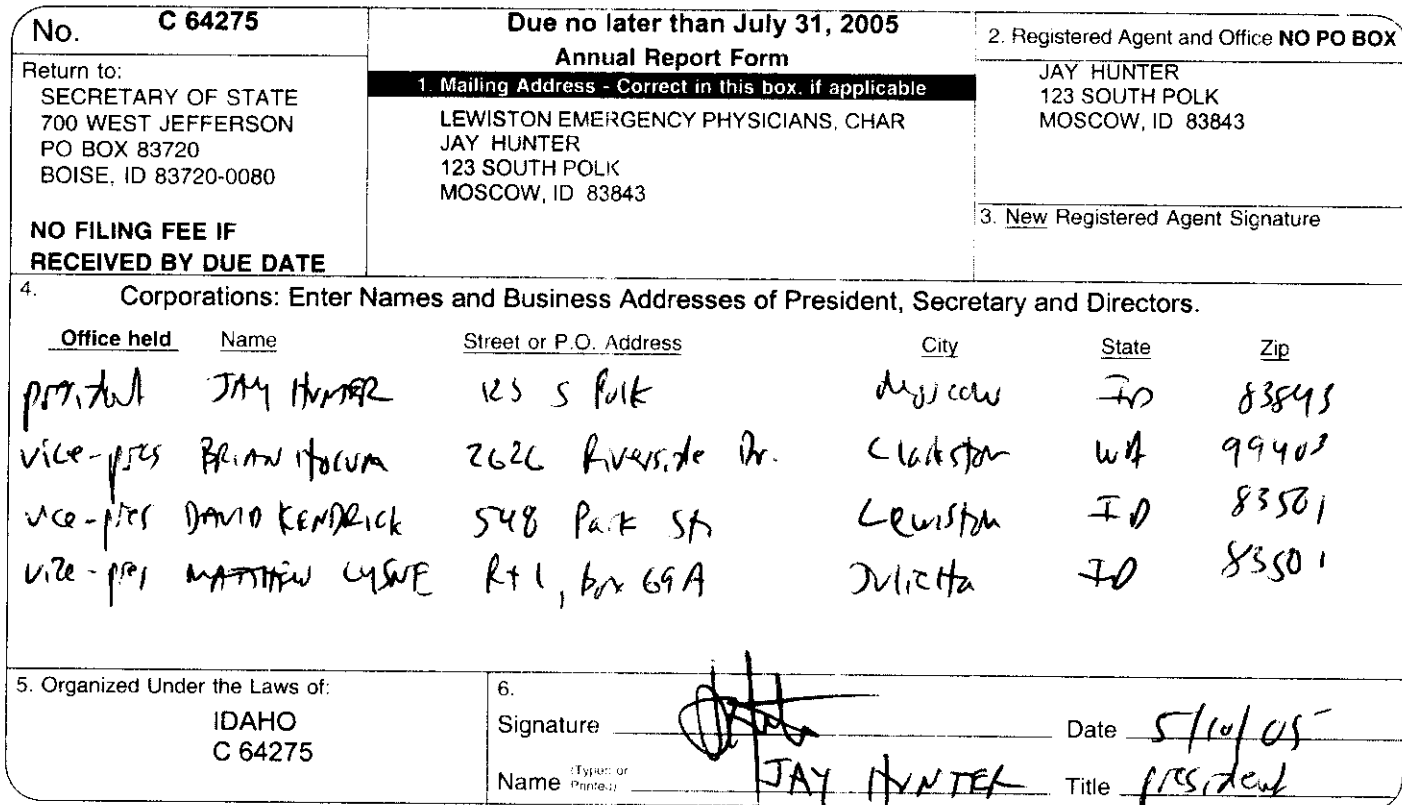 No. C 64275
Return to:
SECRETARY OF STATE
700 WEST JEFFERSON
PO BOX 83720
BOISE, ID 83720-0080
NO FILING FEE IF
RECEIVED BY DUE DATE
Due no later than July 31, 2005
Annual Report Form
1. Mailing Address - Correct in this box, if applicable
LEWISTON EMERGENCY PHYSICIANS, CHAR
JAY HUNTER
123 SOUTH POLK
MOSCOW, ID 83843
2. Registered Agent and Office NO PO BOX
JAY HUNTER
123 SOUTH POLK
MOSCOW, ID 83843
3. New Registered Agent Signature
4. Corporations: Enter Names and Business Addresses of President, Secretary and Directors.
Office held Name Street or P.O. Address City State Zip
president JAY HUNTER 123 S Polk Moscow ID 83843
vice-pres BRIAN HOCUM 2626 Riverside Dr. Clarkston WA 99403
vice-pres DAVID KENDRICK 548 Park St Lewiston ID 83501
vice-pres MATTHEW LYSNE Rt 1, box 69A Julietta ID 83501
5. Organized Under the Laws of:
IDAHO
C 64275
6.
Signature Date 5/10/05
Name (Typed or Printed) JAY HUNTER Title president